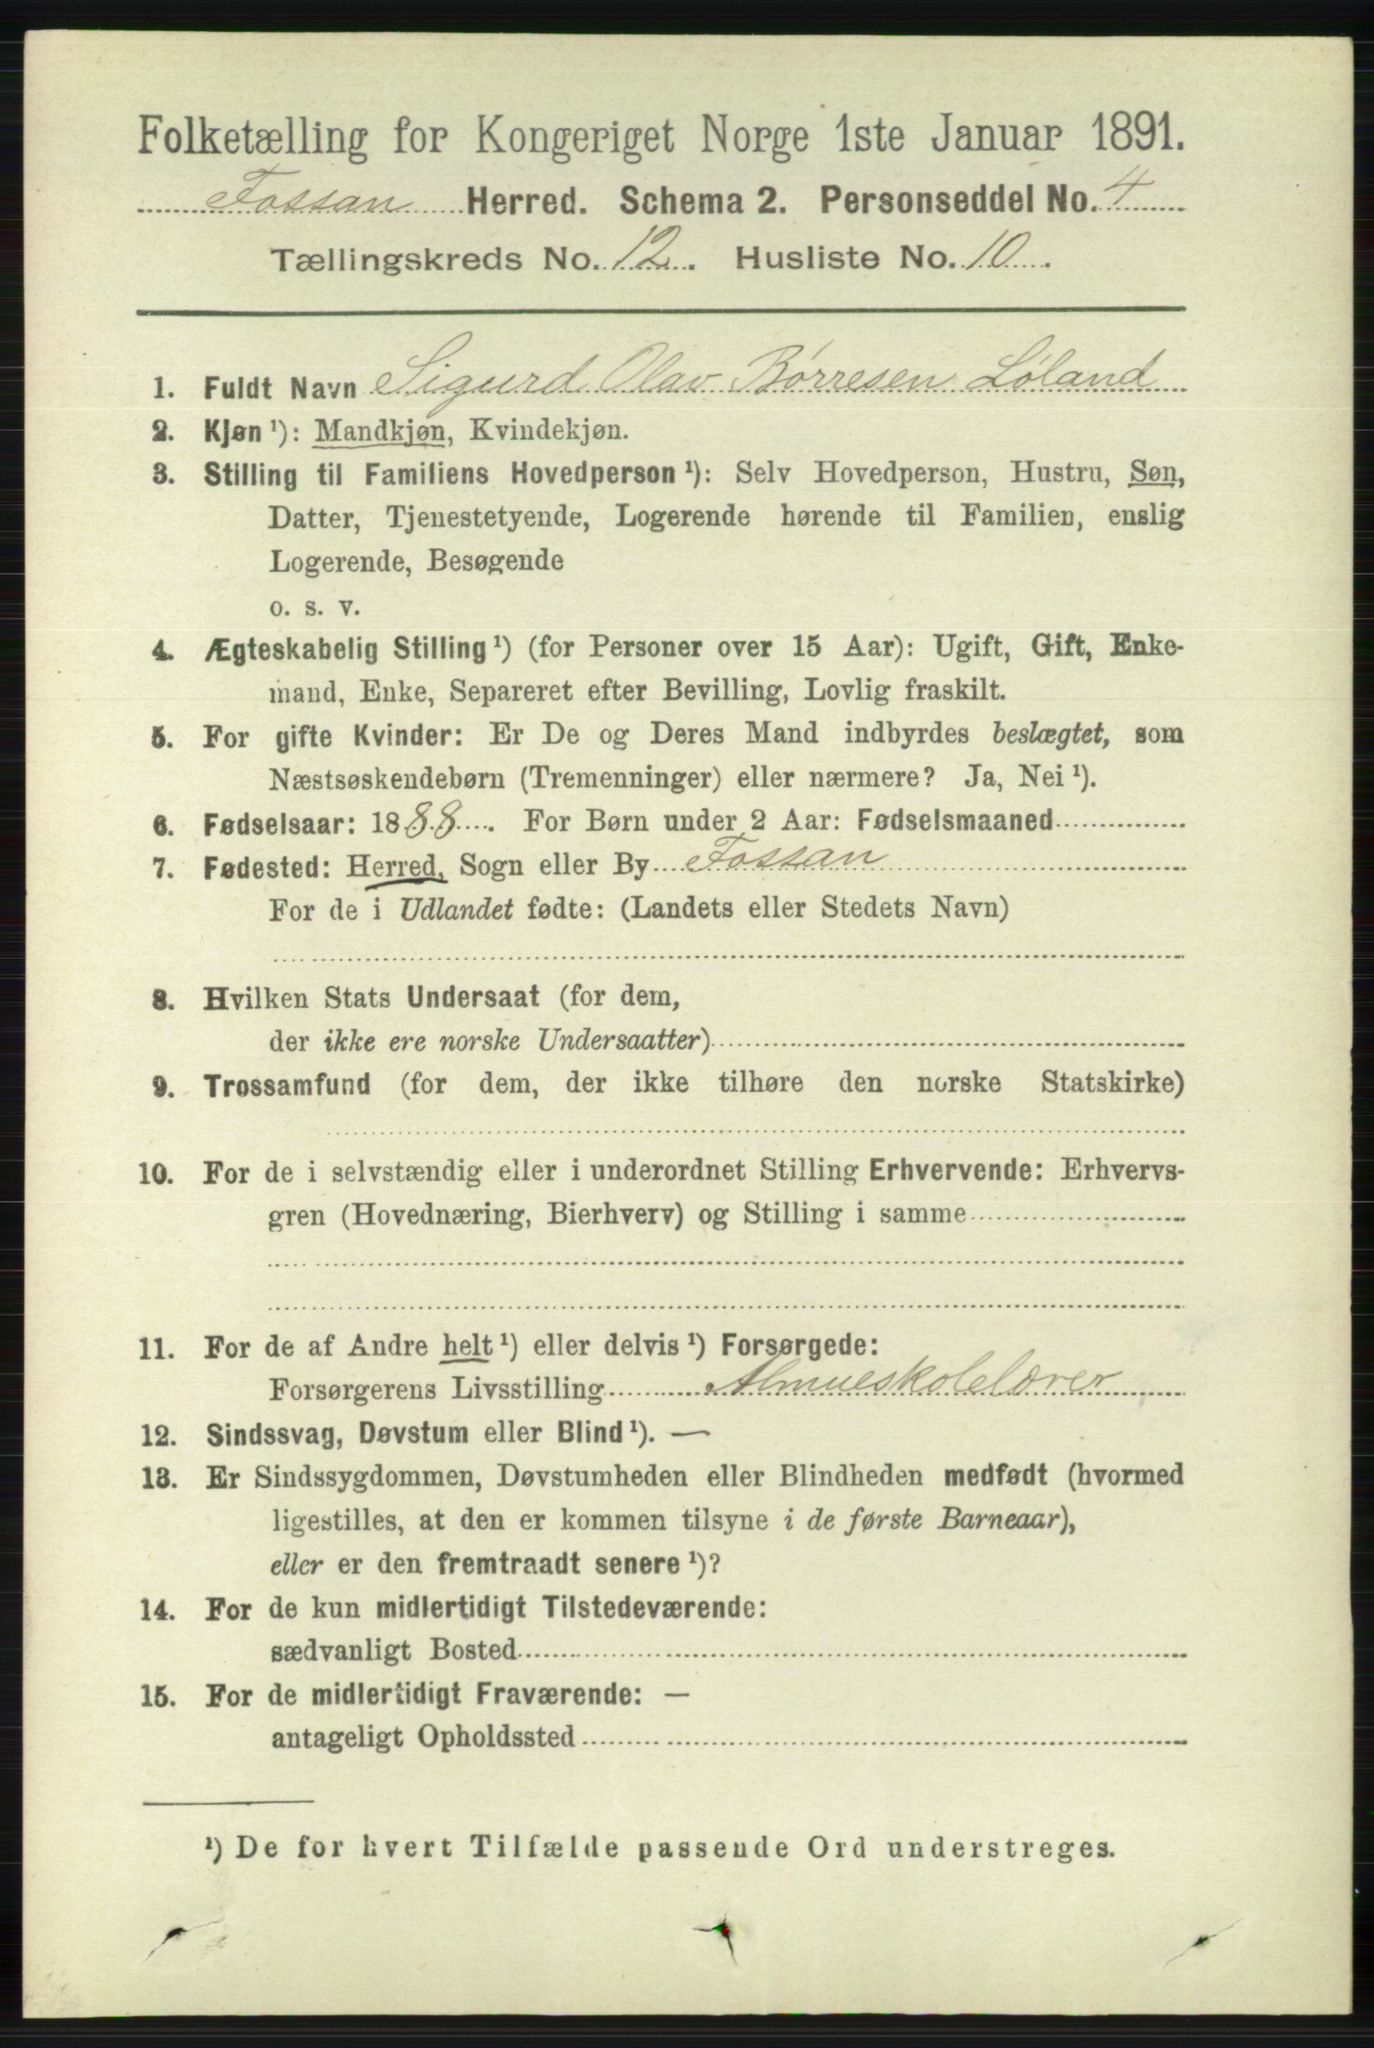 Folketælling for Kongeriget Norge 1ste Januar 1891.
Fossan Herred. Schema 2. Personseddel No. 4
Tællingskreds No. 12. Husliste No. 10.
1. Fuldt Navn Sigurd Olav Børresen Løland
2. Kjøn ¹): Mandkjøn, Kvindekjøn.
3. Stilling til Familiens Hovedperson ¹): Selv Hovedperson, Hustru, Søn,
Datter, Tjenestetyende, Logerende hørende til Familien, enslig
Logerende, Besøgende
o. s. v.
4. Ægteskabelig Stilling ¹) (for Personer over 15 Aar): Ugift, Gift, Enke-
mand, Enke, Separeret efter Bevilling, Lovlig fraskilt.
5. For gifte Kvinder: Er De og Deres Mand indbyrdes beslægtet, som
Næstsøskendebørn (Tremenninger) eller nærmere? Ja, Nei ¹).
6. Fødselsaar: 1888. For Børn under 2 Aar: Fødselsmaaned
7. Fødested: Herred, Sogn eller By Fossan
For de i Udlandet fødte: (Landets eller Stedets Navn)
8. Hvilken Stats Undersaat (for dem,
der ikke ere norske Undersaatter)
9. Trossamfund (for dem, der ikke tilhøre den norske Statskirke)
10. For de i selvstændig eller i underordnet Stilling Erhvervende: Erhvervs-
gren (Hovednæring, Bierhverv) og Stilling i samme
11. For de af Andre helt ¹) eller delvis ¹) Forsørgede:
Forsørgerens Livsstilling Almueskolelærer
12. Sindssvag, Døvstum eller Blind ¹). —
13. Er Sindssygdommen, Døvstumheden eller Blindheden medfødt (hvormed
ligestilles, at den er kommen tilsyne i de første Barneaar),
eller er den fremtraadt senere ¹)?
14. For de kun midlertidigt Tilstedeværende:
sædvanligt Bosted
15. For de midlertidigt Fraværende: —
antageligt Opholdssted
¹) De for hvert Tilfælde passende Ord understreges.